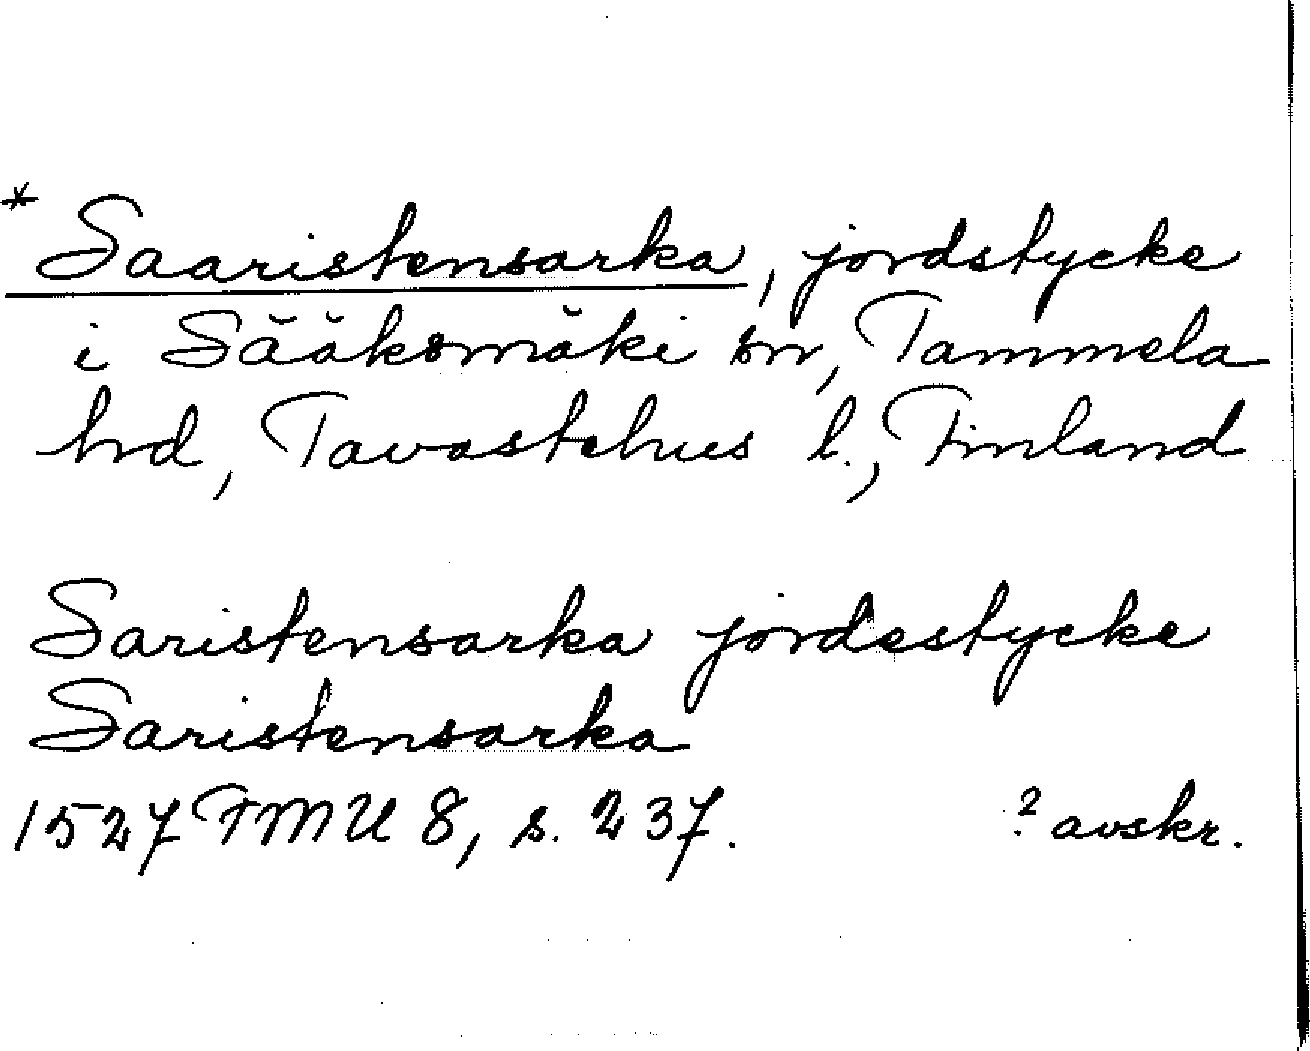 * Saaristensarka, jordstycke
i Sääksmäki sn, Tammela
hd, Tavastehus l., Finland
Saristensarka jordestycke
Saristensarka
1527 FMU 8, s. 237. ? avskr.